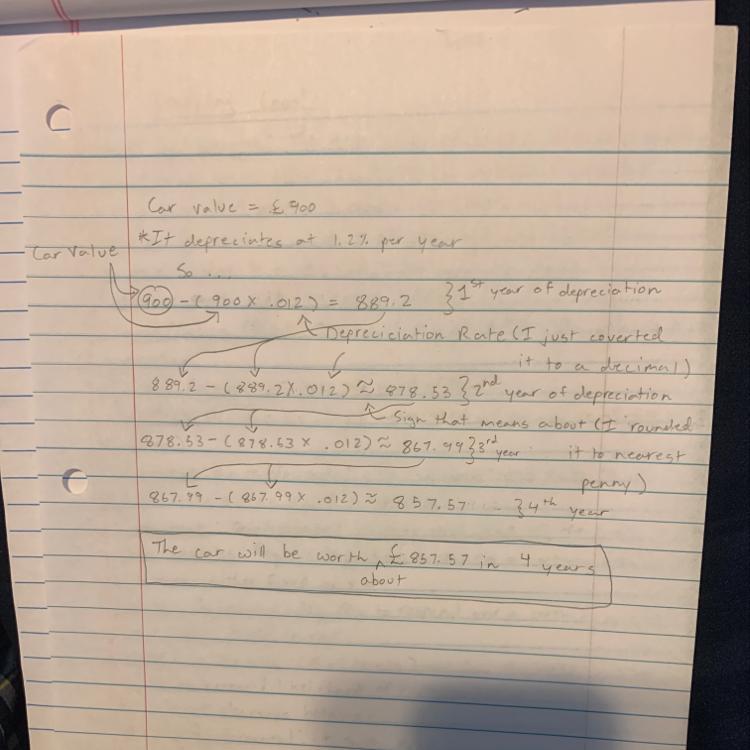 Car value = £900
*It depreciates at 1.2% per year
Car Value
So ...
900 - (900 x .012) = 889.2 }1st year of depreciation
Depreciciation Rate (I just coverted
it to a decimal)
889.2 - (889.2 x .012) ≈ 878.53 }2nd year of depreciation
Sign that means about (I rounded
878.53 - (878.53 x .012) ≈ 867.99 }3rd year it to nearest
penny)
867.99 - (867.99 x .012) ≈ 857.57 }4th year
The car will be worth about £857.57 in 4 years